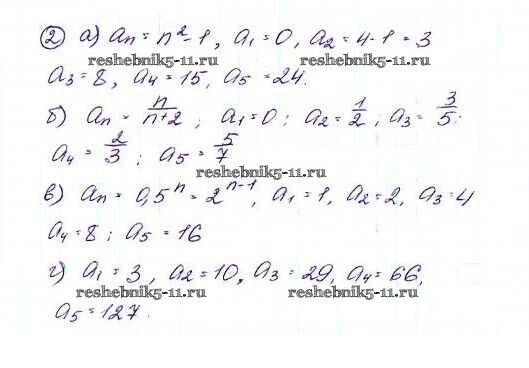 ② а) aₙ = n² - 1, a₁ = 0, a₂ = 4-1 = 3
reshebnik5-11.ru
a₃ = 8, a₄ = 15, a₅ = 24.
б) aₙ = n/n+2; a₁ = 0; a₂ = 1/2; a₃ = 3/5;
a₄ = 2/3; a₅ = 5/7
reshebnik5-11.ru
в) aₙ = 0,5ⁿ = 2ⁿ⁻¹, a₁ = 1, a₂ = 2, a₃ = 4
a₄ = 8; a₅ = 16
г) a₁ = 3, a₂ = 10, a₃ = 29, a₄ = 66,
reshebnik5-11.ru reshebnik5-11.ru
a₅ = 127.